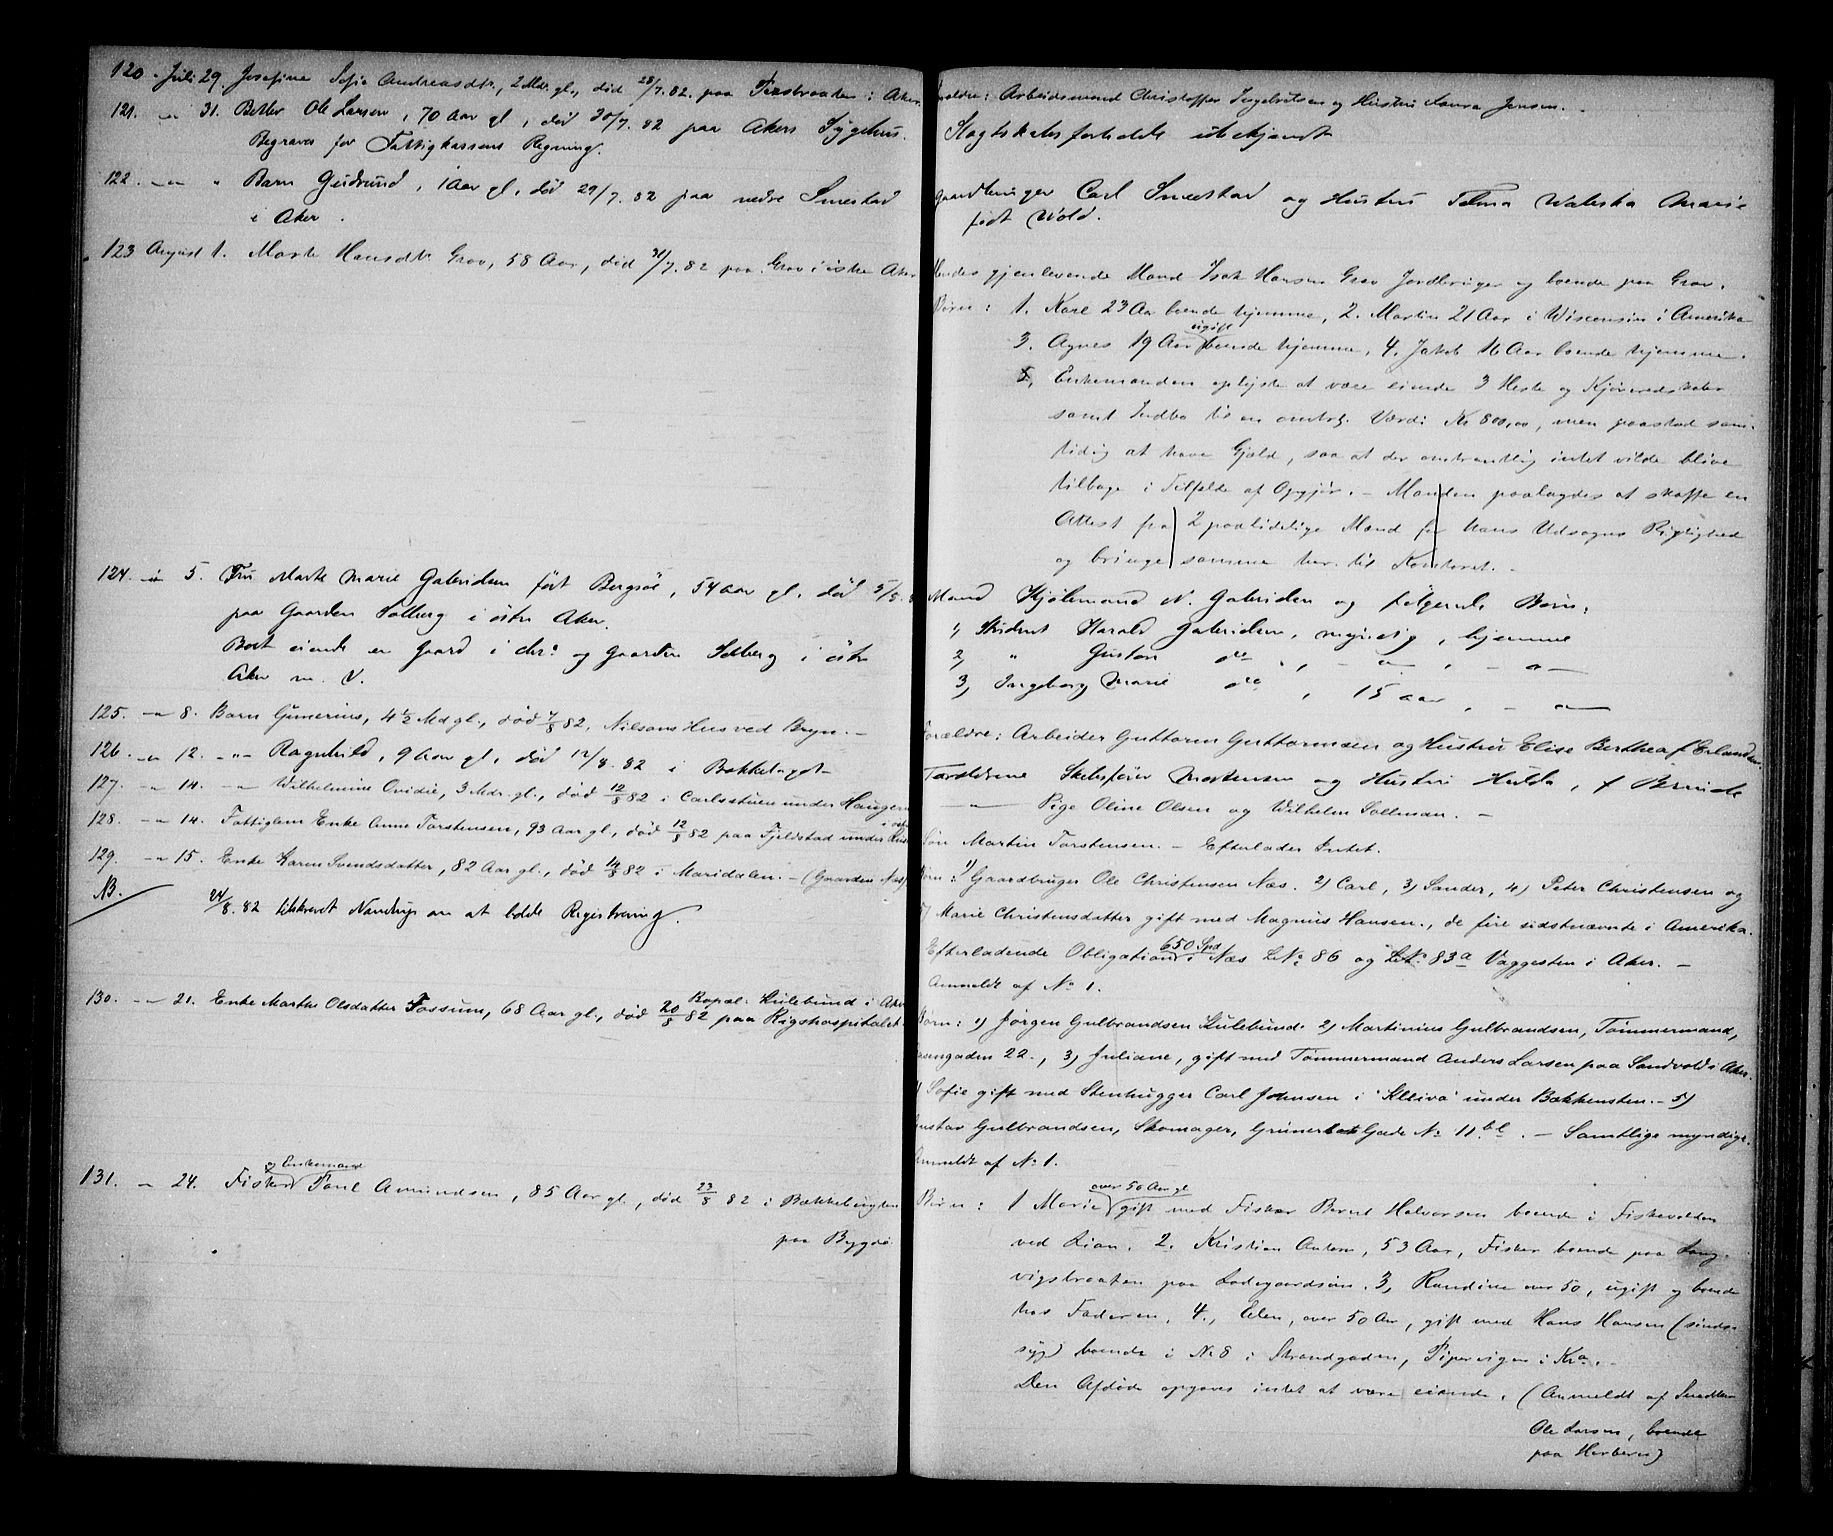 120. Juli 29. Josefine Sofie Andreasdtr, 2 Mdr. gl., død 28/7.82. paa i Aker.
121. -"- 31. Betler Ole Larsen, 70 Aar gl, død 30/7. 82 paa Akers Sygehus.
Begraves for Fattigkassens Regning.
122. -"- " Barn Gudrund, 1 Aar gl, død 29/7. 82 paa nedre Smestad
i Aker.
123 August 1. Marte Hansdtr Grav, 58 Aar, død 31/7. 82 paa Grav i østre Aker
124. -"- 5. Fru Marte Marie Gabrielsen født Bergsøe, 54 aar gl. død 5/8.
paa Gaarden Solberg i østre Aker.
Boet eiende en Gaard i og Gaarden Solberg i østre
Aker m. V.
125. -"- 8. Barn Gunerius, 4 1/2 Md gl., død 7/8 82, Nilsens Hus ved Bryn. -
126. -"- 12. -"- Ragnhild, 9 Aar gl, død 12/8. 82 i Bækkelaget
127. -"- 14. -"- Wilhelmine Ovidie, 3 Mdr. gl., død 12/8 82 i Carlsstuen under Haugen
128. -"- 14. Fattiglem Enke Anne Torstensen, 93 Aar gl, død 12/8 82 paa Fjeldstad under
129. -"- 15. Enke Karen Svendsdatter, 82 Aar gl., død 14/8 82 i Maridalen. - (Gaarden Næs)
NB. 24/8.82 tilskrevet Nandrup om at holde Registrering.
130. -"- 21. Enke Marthe Olsdatter Fossum, 68 Aar gl., død 20/8 82 paa Rigshospitalet. Bopæl: Kulebund i Aker
131. - 24. Fisker og Enkemand Poul Amundsen, 85 Aar gl, død 23/8 82 i Bækkebugten
paa Bygdø.
Forældre: Arbeidsmand Christoffer Ingebretsen og Hustru Laura Jensen. -
Slægtskabsforholde ubekjendt
Gaardbruger Carl Smestad og Hustru Telma Waleska Marie
født Wold.
Hendes gjenlevende Mand Isak Hansen Grav Jordbruger og boende paa Grav.
Børn: 1. Karl 23 Aar boende hjemme, 2. Martin 21 Aar i Wisconsin i Amerika
3. Agnes 19 Aar ugift boende hjemme, 4. Jakob 16 Aar boende hjemme.
Enkemanden oplyste at være eiende 3 Heste og Kjøreredskaber
samt Indbo til en omtrtl. Værdi Kr 800,00, men paastod sam-
tidig at have Gjæld, saa at der omtrentlig intet vilde blive
tilbage i Tilfælde af Opgjør. - Manden paalagdes at skaffe en
Attest fra 2 paalidelige Mænd for hans Udsagns Rigtighed
og bringe samme her til Kontoret. -
Mand N. Gabrielsen og følgende Børn:
1, Student Harald Gabrielsen, myndig, hjemme
2, " Gustav do, - " -, - " -
3, Ingeborg Marie do, 15 aar, - " -
Forældre: Arbeider Guttorm Guttormsen og Hustru Elise Berthea f. Erlandsen
Forældrene Skibsfører Mortensen og Hustru Hulda, f
-"- Pige Oline Olsen og Wilhelm Sollman. -
Søn Martin Torstensen. - Efterlader Intet.
Børn: 1) Gaardbruger Ole Christensen Næs. 2) Carl, 3) Sander, 4) Peter Christensen og
5) Marie Christensdatter gift med Magnus Hansen., de fire sidstnævnte i Amerika.
Efterladende Obligation 650 Spd i Næs L.No 86 og L.No 83a Vaggesten i Aker. -
Anmeldt af No 1.
Børn: 1) Jørgen Gulbrandsen Kulebund. 2) Martinius Gulbrandsen, Tømmermand,
22., 3) Juliane, gift med Tømmermand Anders Larsen paa Sandvold i Aker.
4) Sofie gift med Stenhugger Carl Johnsen i "Kleiva" under Bækkensten. - 5)
Gustav Gulbrandsen, Skomager, Grünerløk Gade No 11 bl. - Samtlige myndige.
Anmeldt af No 1.
Børn: 1 Marie over 50 Aar gl gift med Fisker Bernt Halvorsen boende i Fiskevolden
ved Lian. 2. Kristian Anton, 53 Aar, Fisker boende paa Lang-
vigsbraaten paa Ladegaardsøen. 3, Randine over 50, ugift og boende
hos Faderen. 4., Elen, over 50 Aar, gift med Hans Hansen (sinds-
syg) boende i No 8 i Strandgaden, Pipervigen i Kra. -
Den Afdøde opgaves intet at være eiende. (Anmeldt af Snedker
Ole Larsen, boende
paa Herbern)